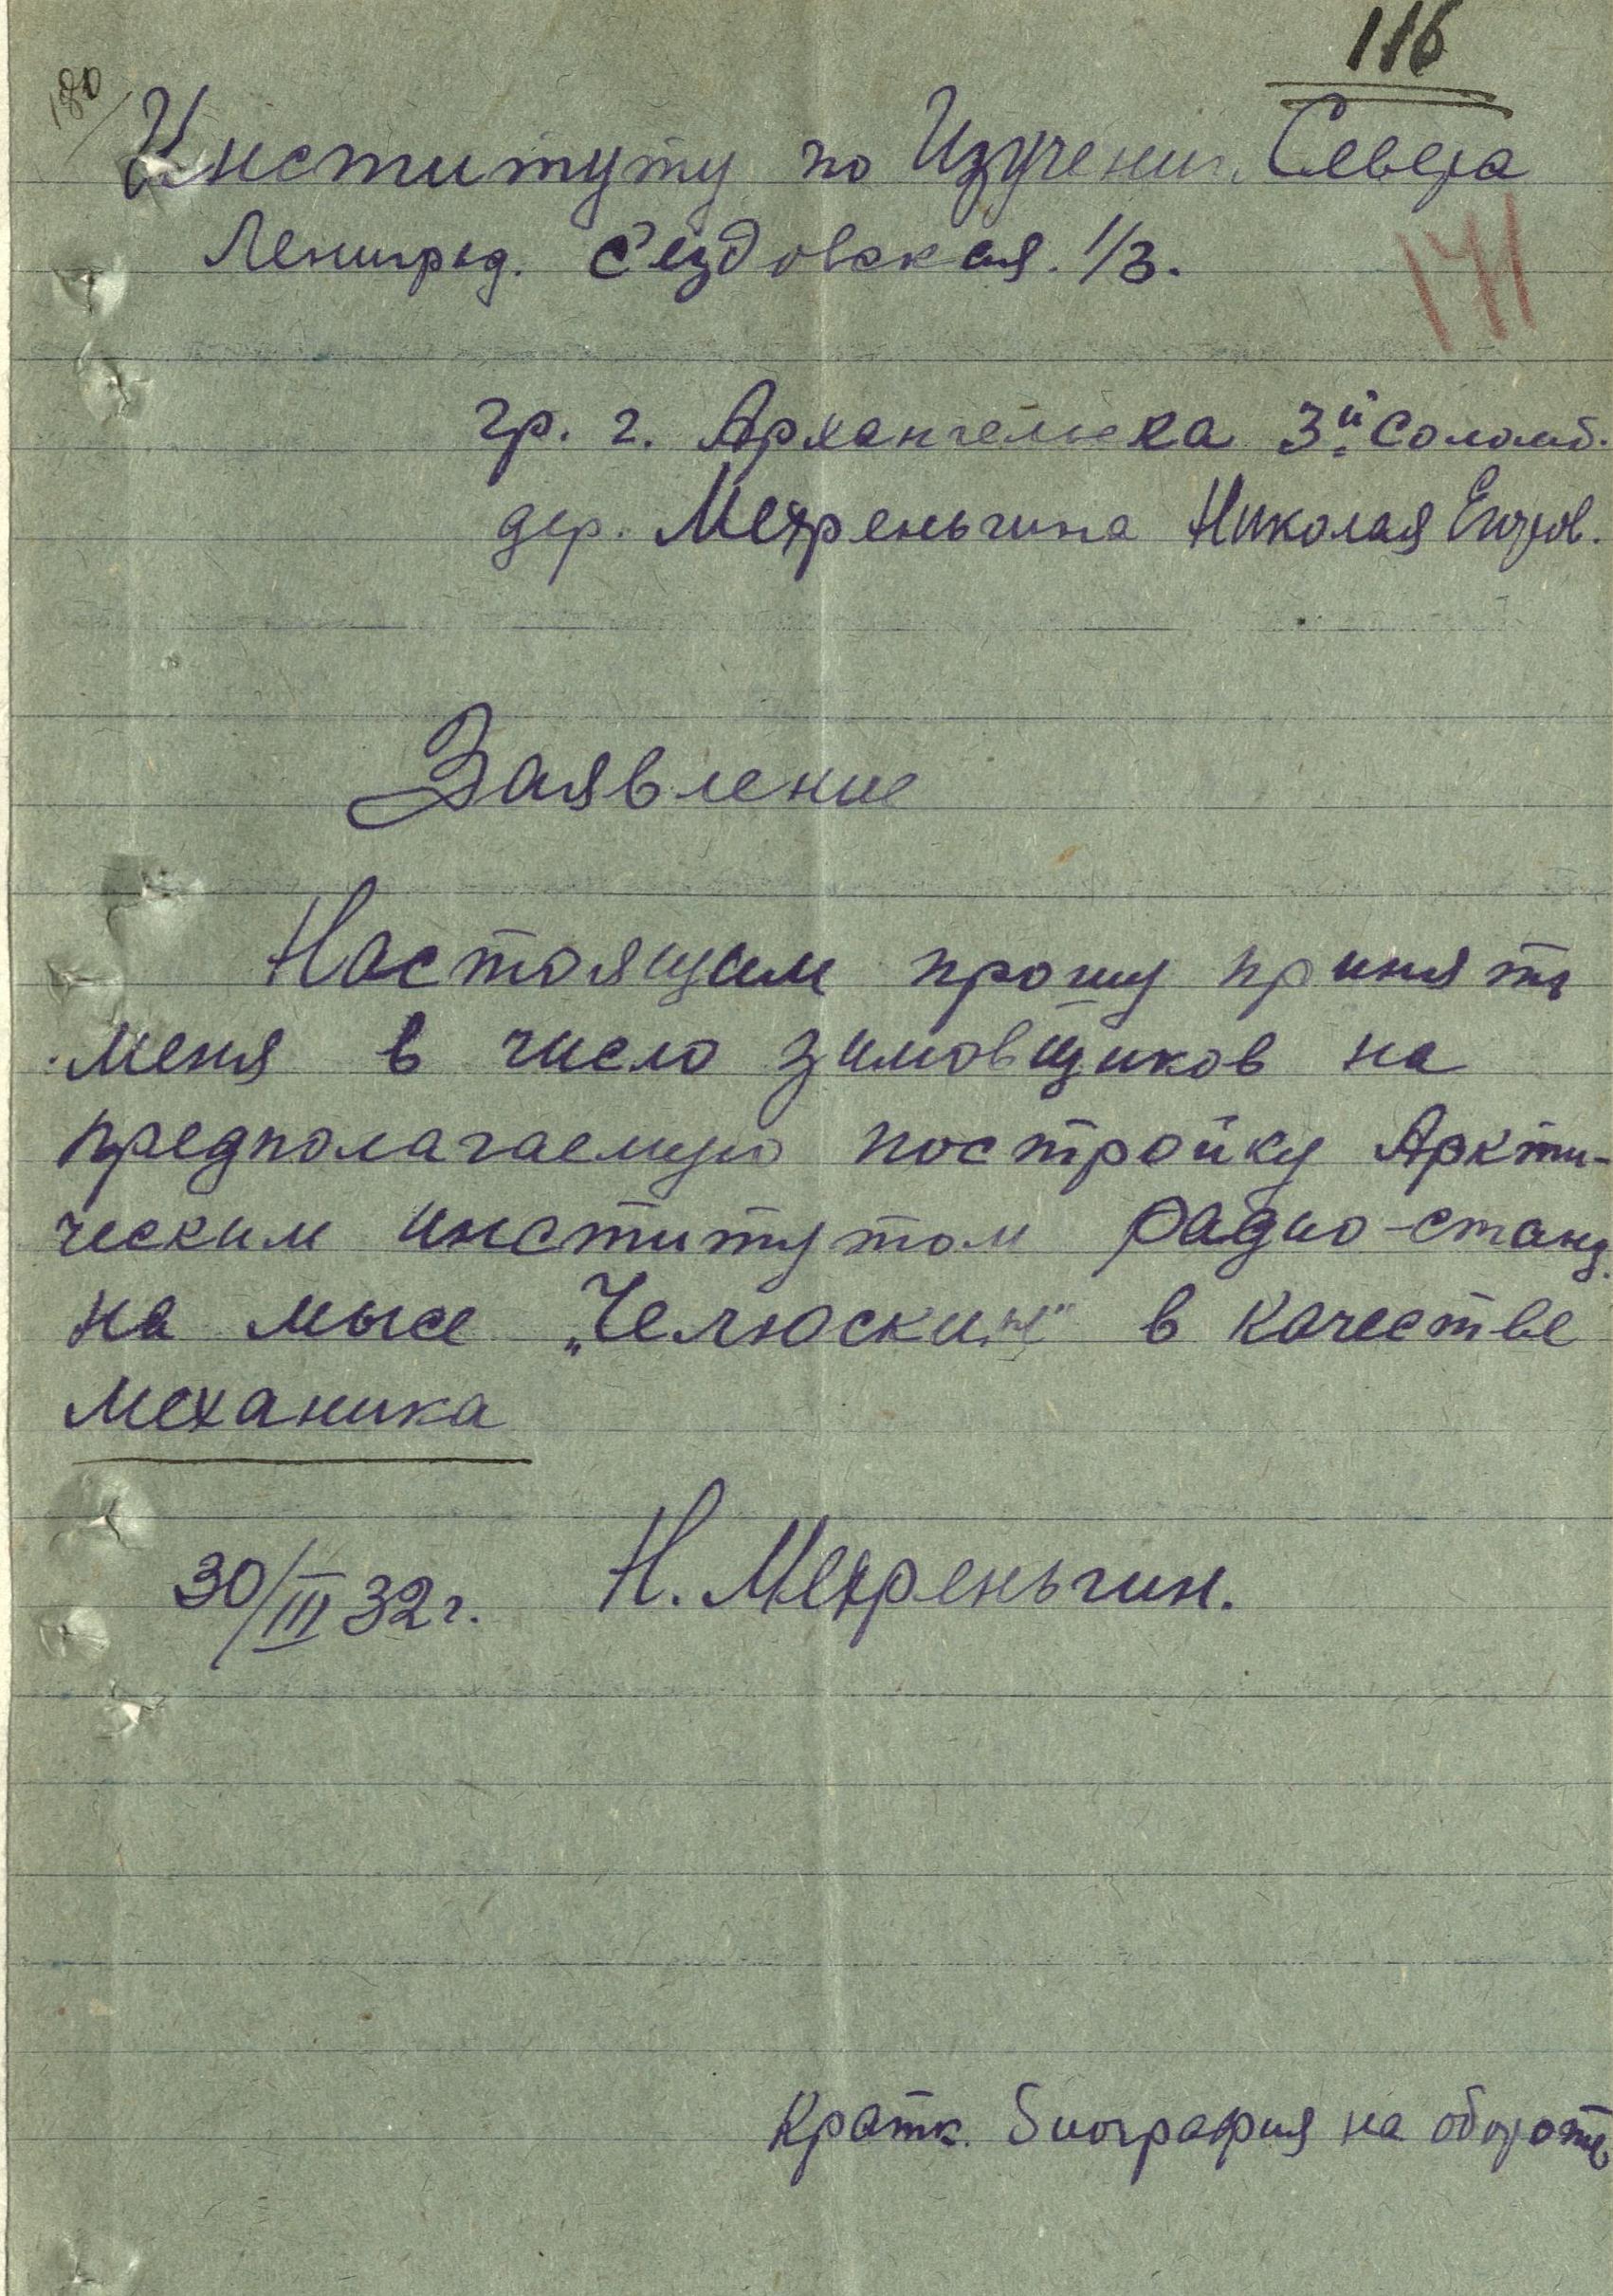 116
180
Институту по Изучению Севера
Ленинград. Сездовская. 1/3.
171
гр. г. Архангельска 3й Соломб.
дер. Мехреньгина Николая Егоров.
Заявление
Настоящим прошу принять
меня в число зимовщиков на
предполагаемую постройку Аркти-
ческим институтом радио-станц.
на мысе „Челюскин" в качестве
механика
30/III 32 г. Н. Мехреньгин.
Кратк. биография на обороте